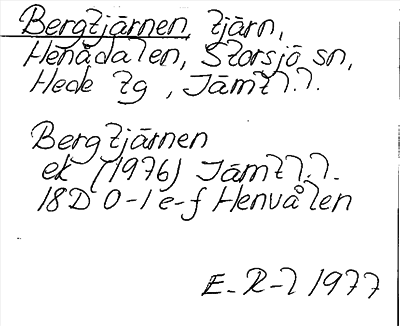 Bergtjärnen, tjärn,
Henådalen, Storsjö sn,
Hede tg, Jämtl.
Bergtjärnen
ek (1976) Jämtl.
18D 0-1 e-f Henvålen
E. R-l 1977